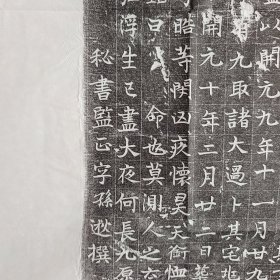 以開元九年十一月廿九
九取諸大過卜其宅兆
開元十年二月廿二日
昭等閔凶疚懷昊天銜恤
曰命也莫測人之云
浮生已盡大夜何長九原
秘書監正字孫逖撰